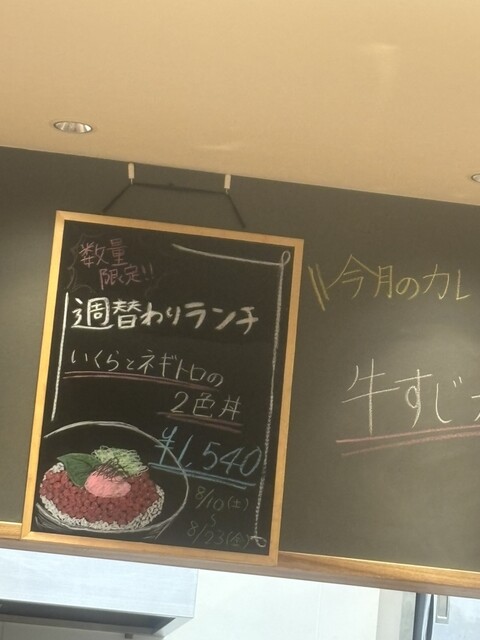 数量
限定!!
週替わりランチ
いくらとネギトロの
2色丼
¥1,540
8/10(土)
～
8/23(金)
今月のカレ
牛すじ